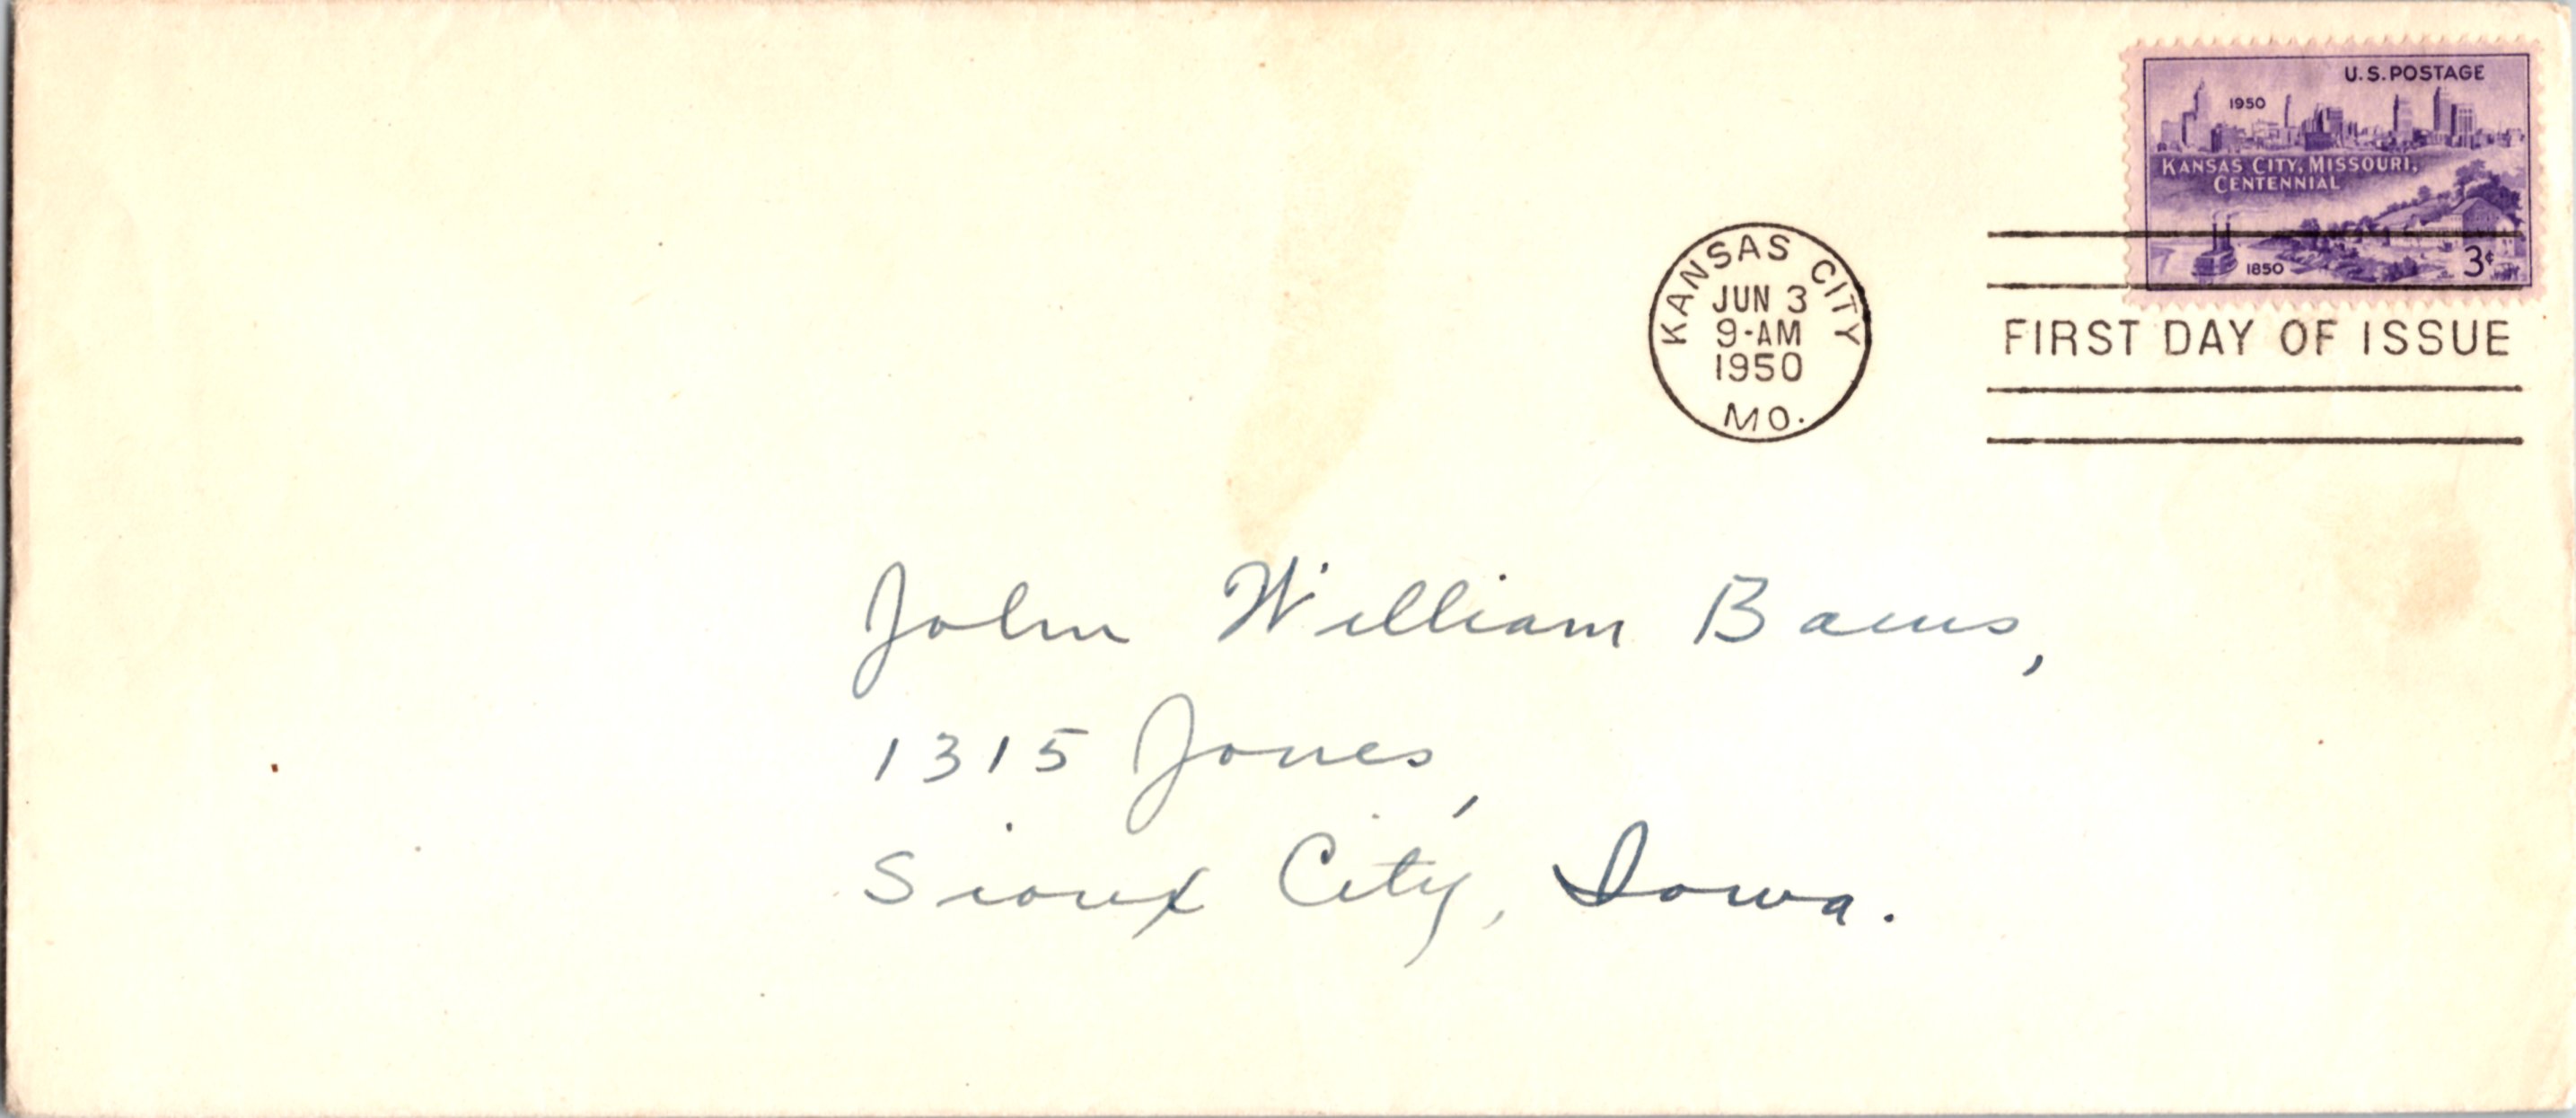 U.S. POSTAGE
1950
KANSAS CITY, MISSOURI,
CENTENNIAL
1850
3¢
KANSAS CITY
JUN 3
9-AM
1950
MO.
FIRST DAY OF ISSUE
John William
1315 Jones,
Sioux City, Iowa.